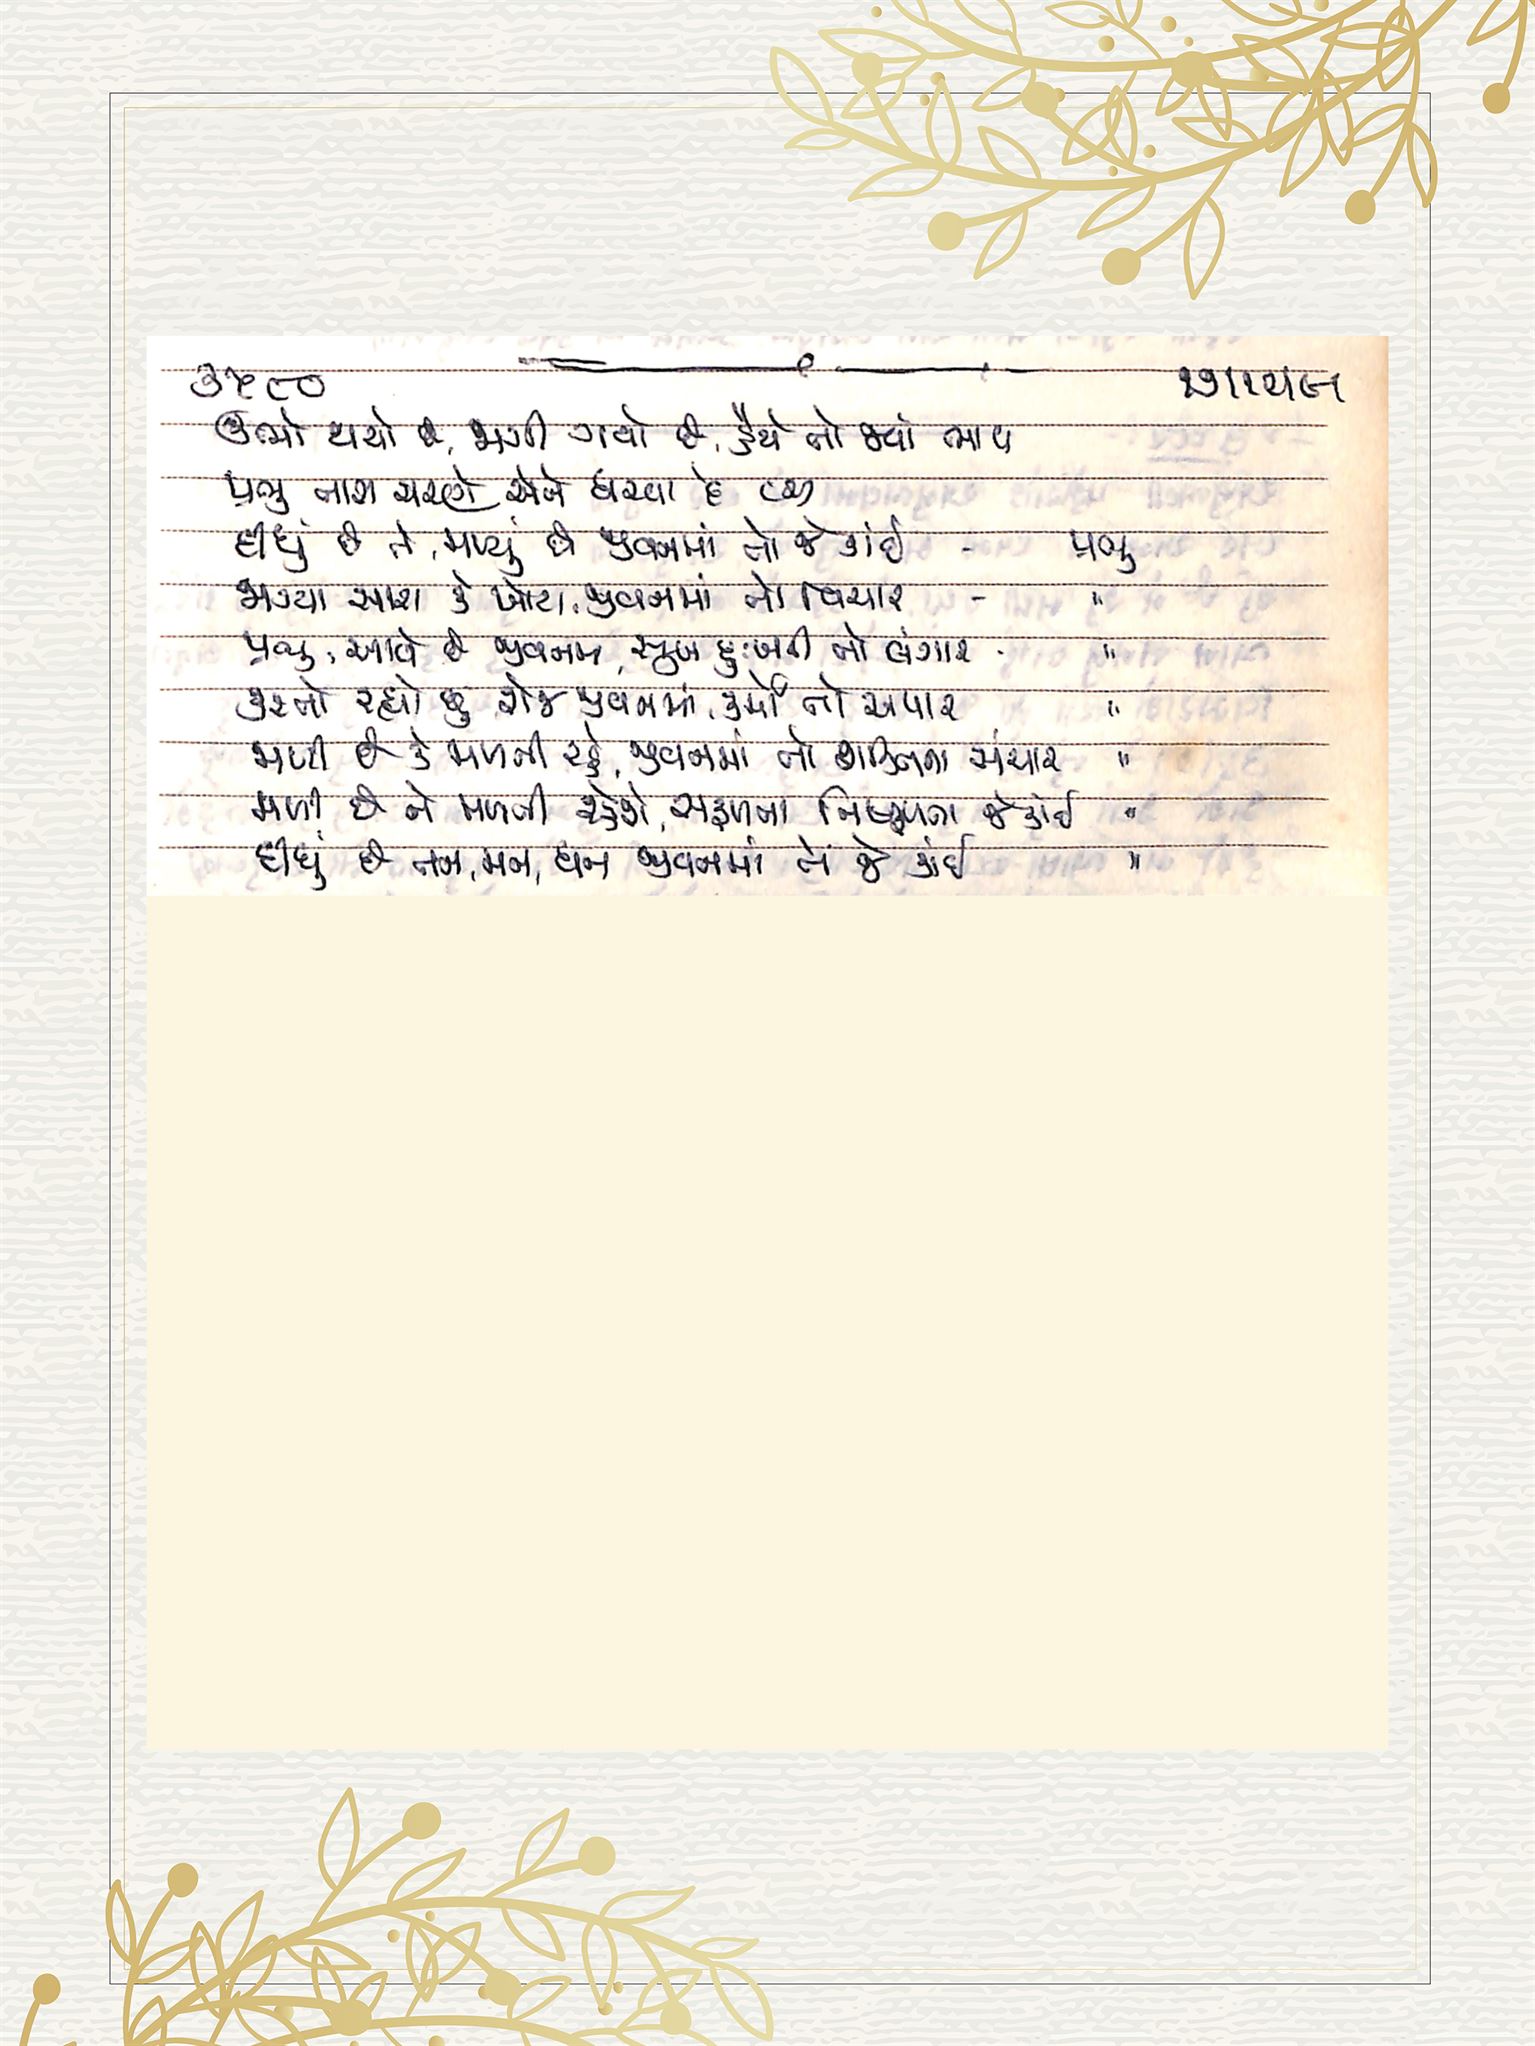 ૩૫૯૦
ઊભો થયો છે, મળી ગયો છે, હૈયે તો જ્યાં ભાવ
પ્રભુ તારા ચરણે એને ધરવા દે
દીધું છે તે, મળ્યું છે જીવનમાં તો જે કાંઈ - પ્રભુ
મળ્યા સારા કે ખોટા, જીવનમાં તો વિચાર - "
પ્રભુ, આવે છે જીવનમાં, સુખ દુઃખની તો લંગાર - "
કરતો રહ્યો છું રોજ જીવનમાં, કર્મો તો અપાર "
મળી છે કે મળતી રહે, જીવનમાં તો શક્તિના સંચાર "
મળી છે ને મળતી રહેશે, સફળતા નિષ્ફળતા જે કાંઈ "
દીધું છે તન, મન, ધન જીવનમાં તેં જે કાંઈ "